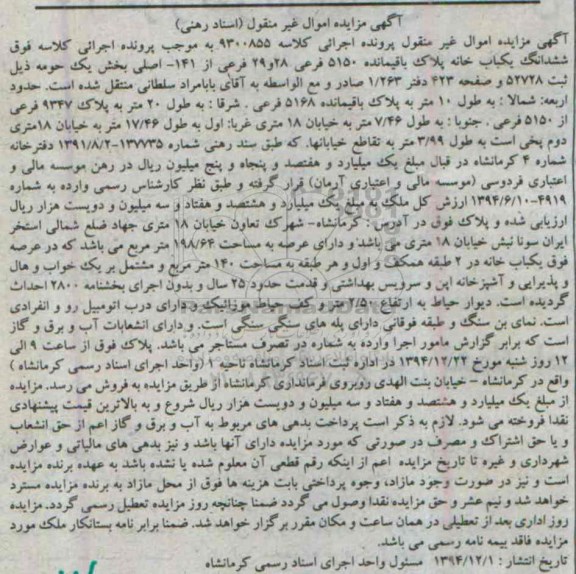 آگهی مزایده اموال غیر منقول (اسناد رهنی)
آگهی مزایده اموال غیر منقول پرونده اجرائی کلاسه ۹۳۰۰۸۵۵ به موجب پرونده اجرائی کلاسه فوق
ششدانگ یکباب خانه پلاک باقیمانده ۵۱۵۰ فرعی ۲۸و۲۹ فرعی از ۱۴۱- اصلی بخش یک حومه ذیل
ثبت ۵۲۷۲۸ و صفحه ۴۲۳ دفتر ۱/۲۶۳ صادر و مع الواسطه به آقای بابامراد سلطانی منتقل شده است. حدود
اربعه: شمالا : به طول ۱۰ متر به پلاک باقیمانده ۵۱۶۸ فرعی . شرقا : به طول ۲۰ متر به پلاک ۹۳۴۷ فرعی
از ۵۱۵۰ فرعی . جنوبا : به طول ۷/۴۶ متر به خیابان ۱۸ متری غربا: اول به طول ۱۷/۴۶ متر به خیابان ۱۸متری
دوم پخی است به طول ۳/۹۹ متر به تقاطع خیابانها. که طبق سند رهنی شماره ۱۳۷۷۳۵-۱۳۹۱/۸/۲ دفترخانه
شماره ۴ کرمانشاه در قبال مبلغ یک میلیارد و هفتصد و پنجاه و پنج میلیون ریال در رهن موسسه مالی و
اعتباری فردوسی (موسسه مالی و اعتباری آرمان) قرار گرفته و طبق نظر کارشناس رسمی وارده به شماره
۴۹۱۹-۱۳۹۴/۶/۱۰ ارزش کل ملک به مبلغ یک میلیارد و هشتصد و هفتاد و سه میلیون و دویست هزار ریال
ارزیابی شده و پلاک فوق در آدرس : کرمانشاه- شهرک تعاون خیابان ۱۸ متری جهاد ضلع شمالی استخر
ایران سونا نبش خیابان ۱۸ متری می باشد و دارای عرصه به مساحت ۱۹۸/۶۴ متر مربع می باشد که در عرصه
فوق یکباب خانه در ۲ طبقه همکف و اول و هر طبقه به مساحت ۱۴۰ متر مربع و مشتمل بر یک خواب و هال
و پذیرایی و آشپزخانه اپن و سرویس بهداشتی و قدمت حدود ۲۵ سال و بدون اجرای بخشنامه ۲۸۰۰ احداث
گردیده است. دیوار حیاط به ارتفاع ۲/۵۰ متر و کف حیاط موزائیک و دارای درب اتومبیل رو و انفرادی
است. نمای بن سنگ و طبقه فوقانی دارای پله های سنگی سنگی است. و دارای انشعابات آب و برق و گاز
است که برابر گزارش مامور اجرا وارده به شماره در تصرف مستاجر می باشد. پلاک فوق از ساعت ۹ الی
۱۲ روز شنبه مورخ ۱۳۹۴/۱۲/۲۲ در اداره ثبت اسناد کرمانشاه ناحیه ۱ (واحد اجرای اسناد رسمی کرمانشاه )
واقع در کرمانشاه - خیابان بنت الهدی روبروی فرمانداری کرمانشاه از طریق مزایده به فروش می رسد. مزایده
از مبلغ یک میلیارد و هشتصد و هفتاد و سه میلیون و دویست هزار ریال شروع و به بالاترین قیمت پیشنهادی
نقدا فروخته می شود. لازم به ذکر است پرداخت بدهی های مربوط به آب و برق و گاز اعم از حق انشعاب
و یا حق اشتراک و مصرف در صورتی که مورد مزایده دارای آنها باشد و نیز بدهی های مالیاتی و عوارض
شهرداری و غیره تا تاریخ مزایده اعم از اینکه رقم قطعی آن معلوم شده یا نشده باشد به عهده برنده مزایده
است و نیز در صورت وجود مازاد، وجوه پرداختی بابت هزینه ها فوق از محل مازاد به برنده مزایده مسترد
خواهد شد و نیم عشر و حق مزایده نقدا وصول می گردد ضمنا چنانچه روز مزایده تعطیل رسمی گردد، مزایده
روز اداری بعد از تعطیلی در همان ساعت و مکان مقرر برگزار خواهد شد. ضمنا برابر نامه بستانکار ملک مورد
مزایده فاقد بیمه نامه رسمی می باشد.
تاریخ انتشار : ۱۳۹۴/۱۲/۱ مسئول واحد اجرای اسناد رسمی کرمانشاه